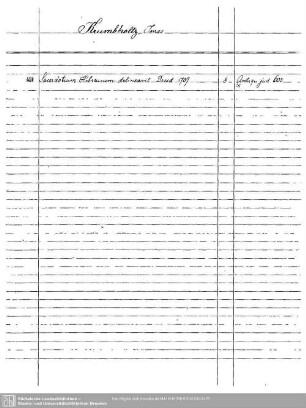 Krumbholtz, Jonas
Sacerdotium Hebraeorum delineavit. Dresd. 1709
8
Antiqu. jud. 600
Sächsische Landesbibliothek -
Staats- und Universitätsbibliothek Dresden